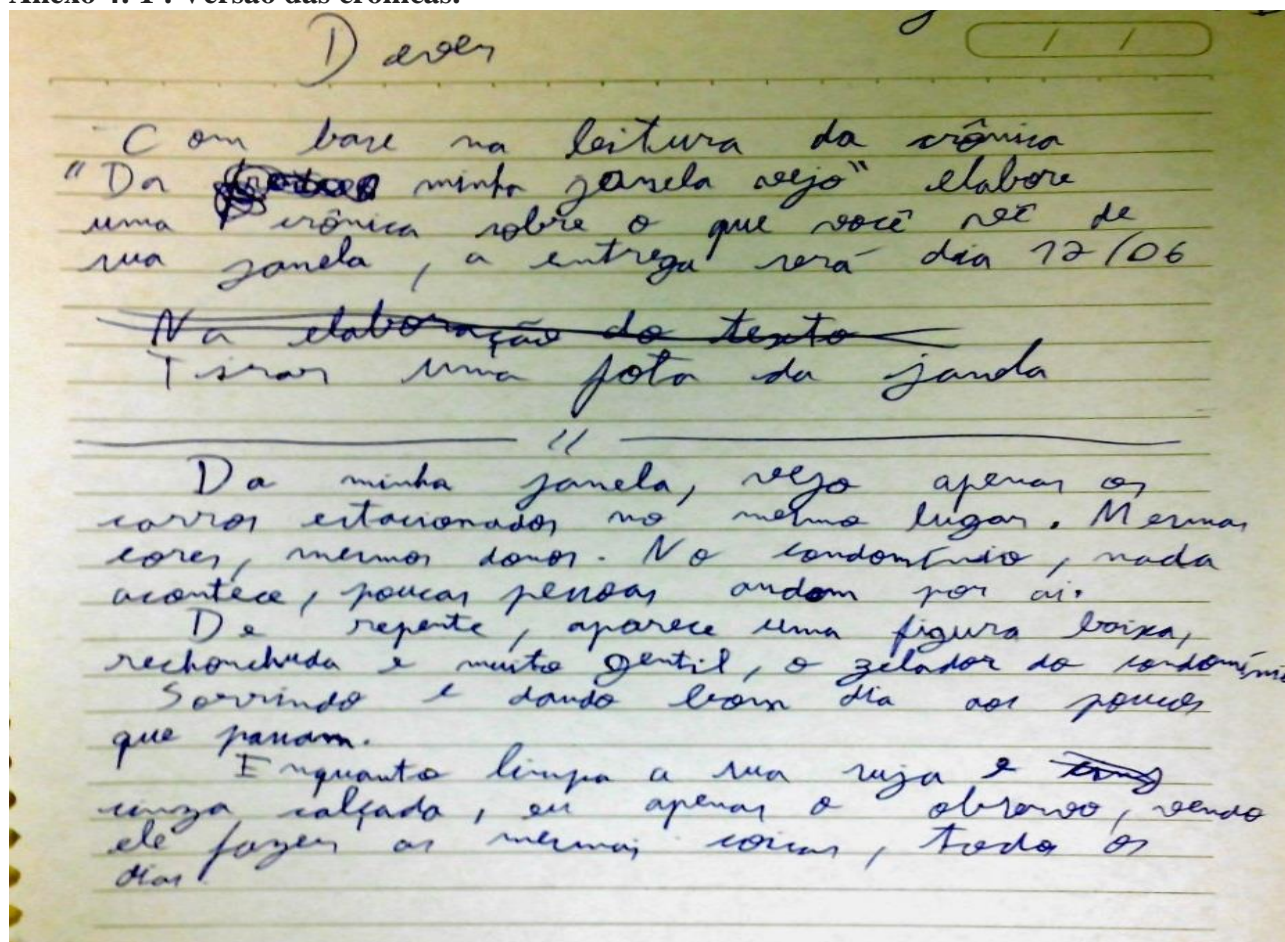 Anexo 4: 1ª. Versão das crônicas.
Dever
/ /
Com base na leitura da crônica
"Da minha janela vejo" elabore
uma crônica sobre o que você vê de
sua janela, a entrega será dia 17/06
Na elaboração do texto
Tirar uma foto da janela
//
Da minha janela, vejo apenas os
carros estacionados no mesmo lugar. Mesmas
cores, mesmos donos. No condomínio, nada
acontece, poucas pessoas andam por ai.
De repente, aparece uma figura baixa,
rechonchuda e muito gentil, o zelador do condomínio
Sorrindo e dando bom dia aos poucos
que passam.
Enquanto limpa a rua suja e
cinza calçada, eu apenas o observo, vendo
ele fazer as mesmas coisas, todo os
dias.